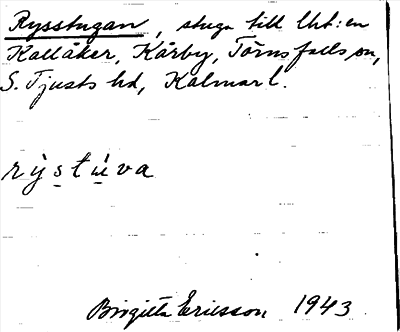 Rysstugan, stuga till lht:en
Kallåker, Kårby, Törnsfalls sn,
S. Tjusts hd, Kalmar l.
rỳstùva
Birgitta Ericsson 1943